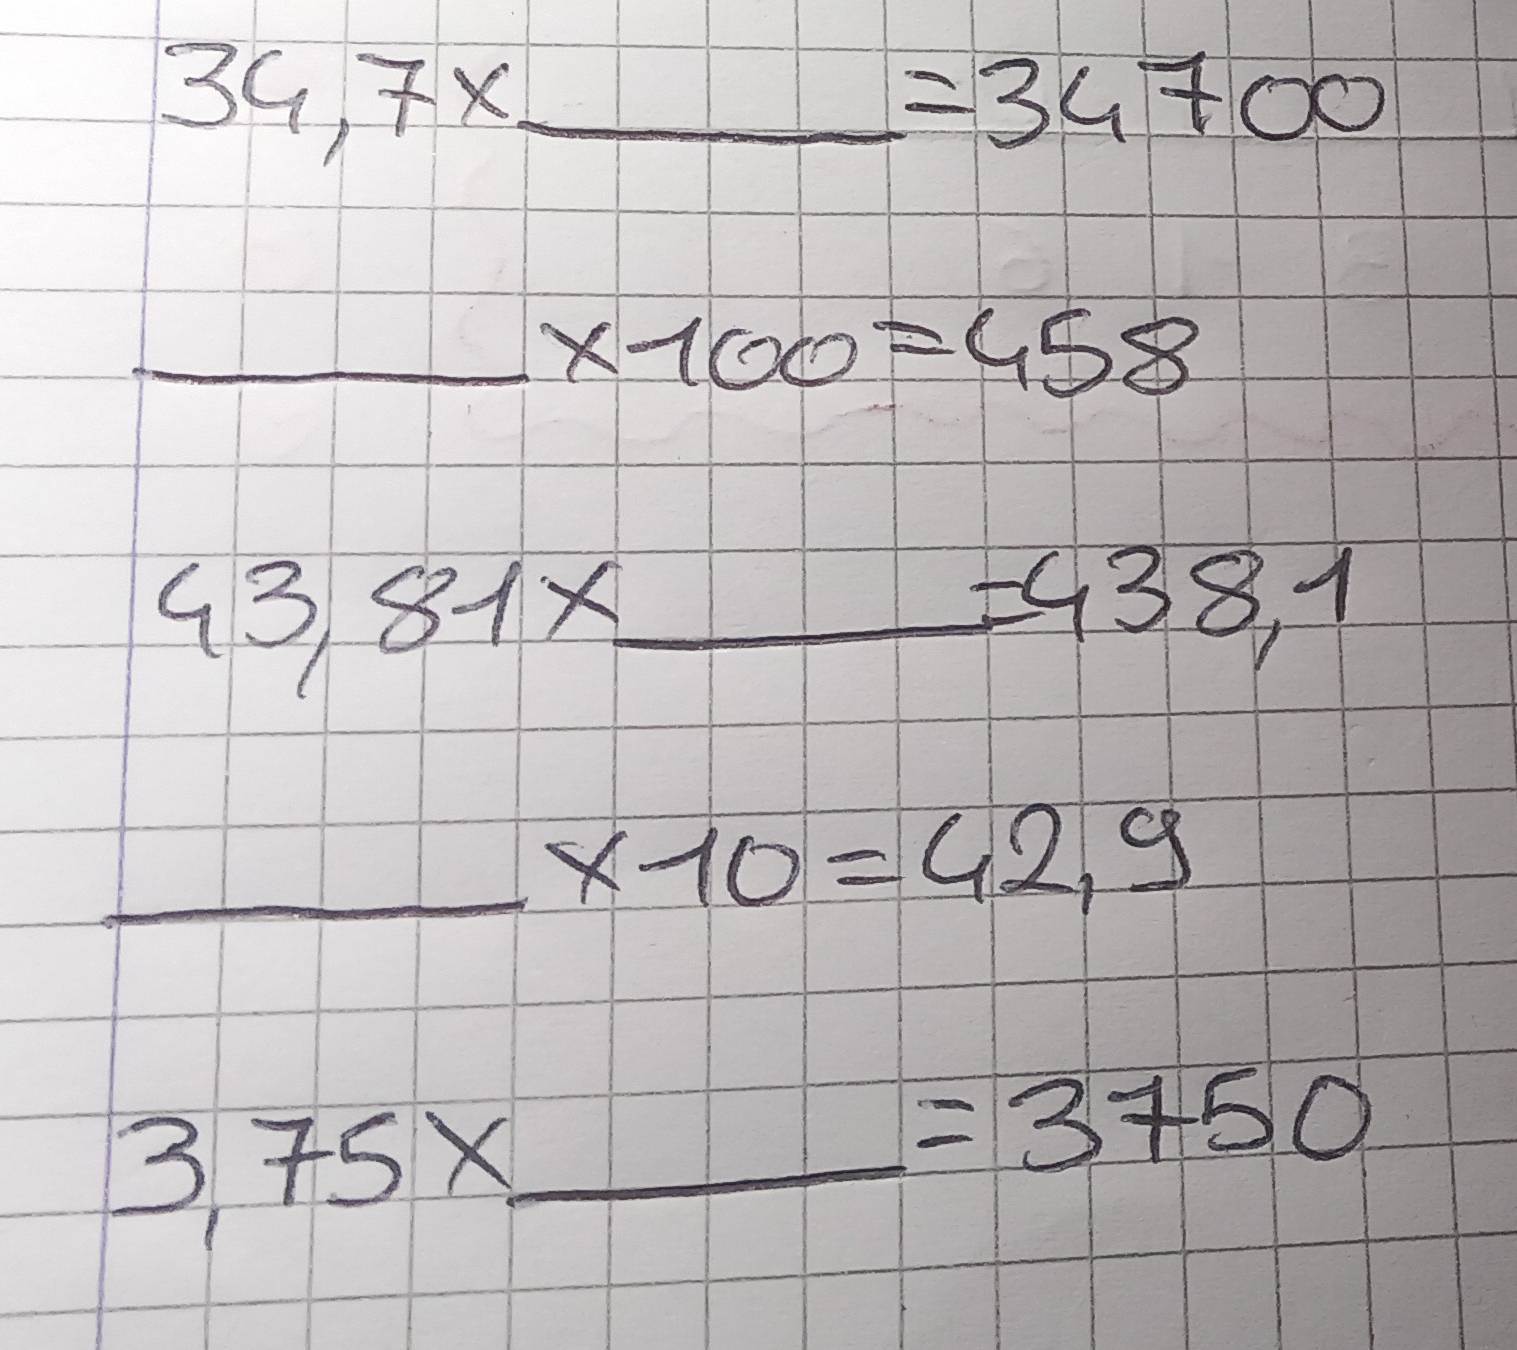 34,7x______=34700
______x100=458
43,81x______=438,1
______x10=42,9
3,75x______=3750